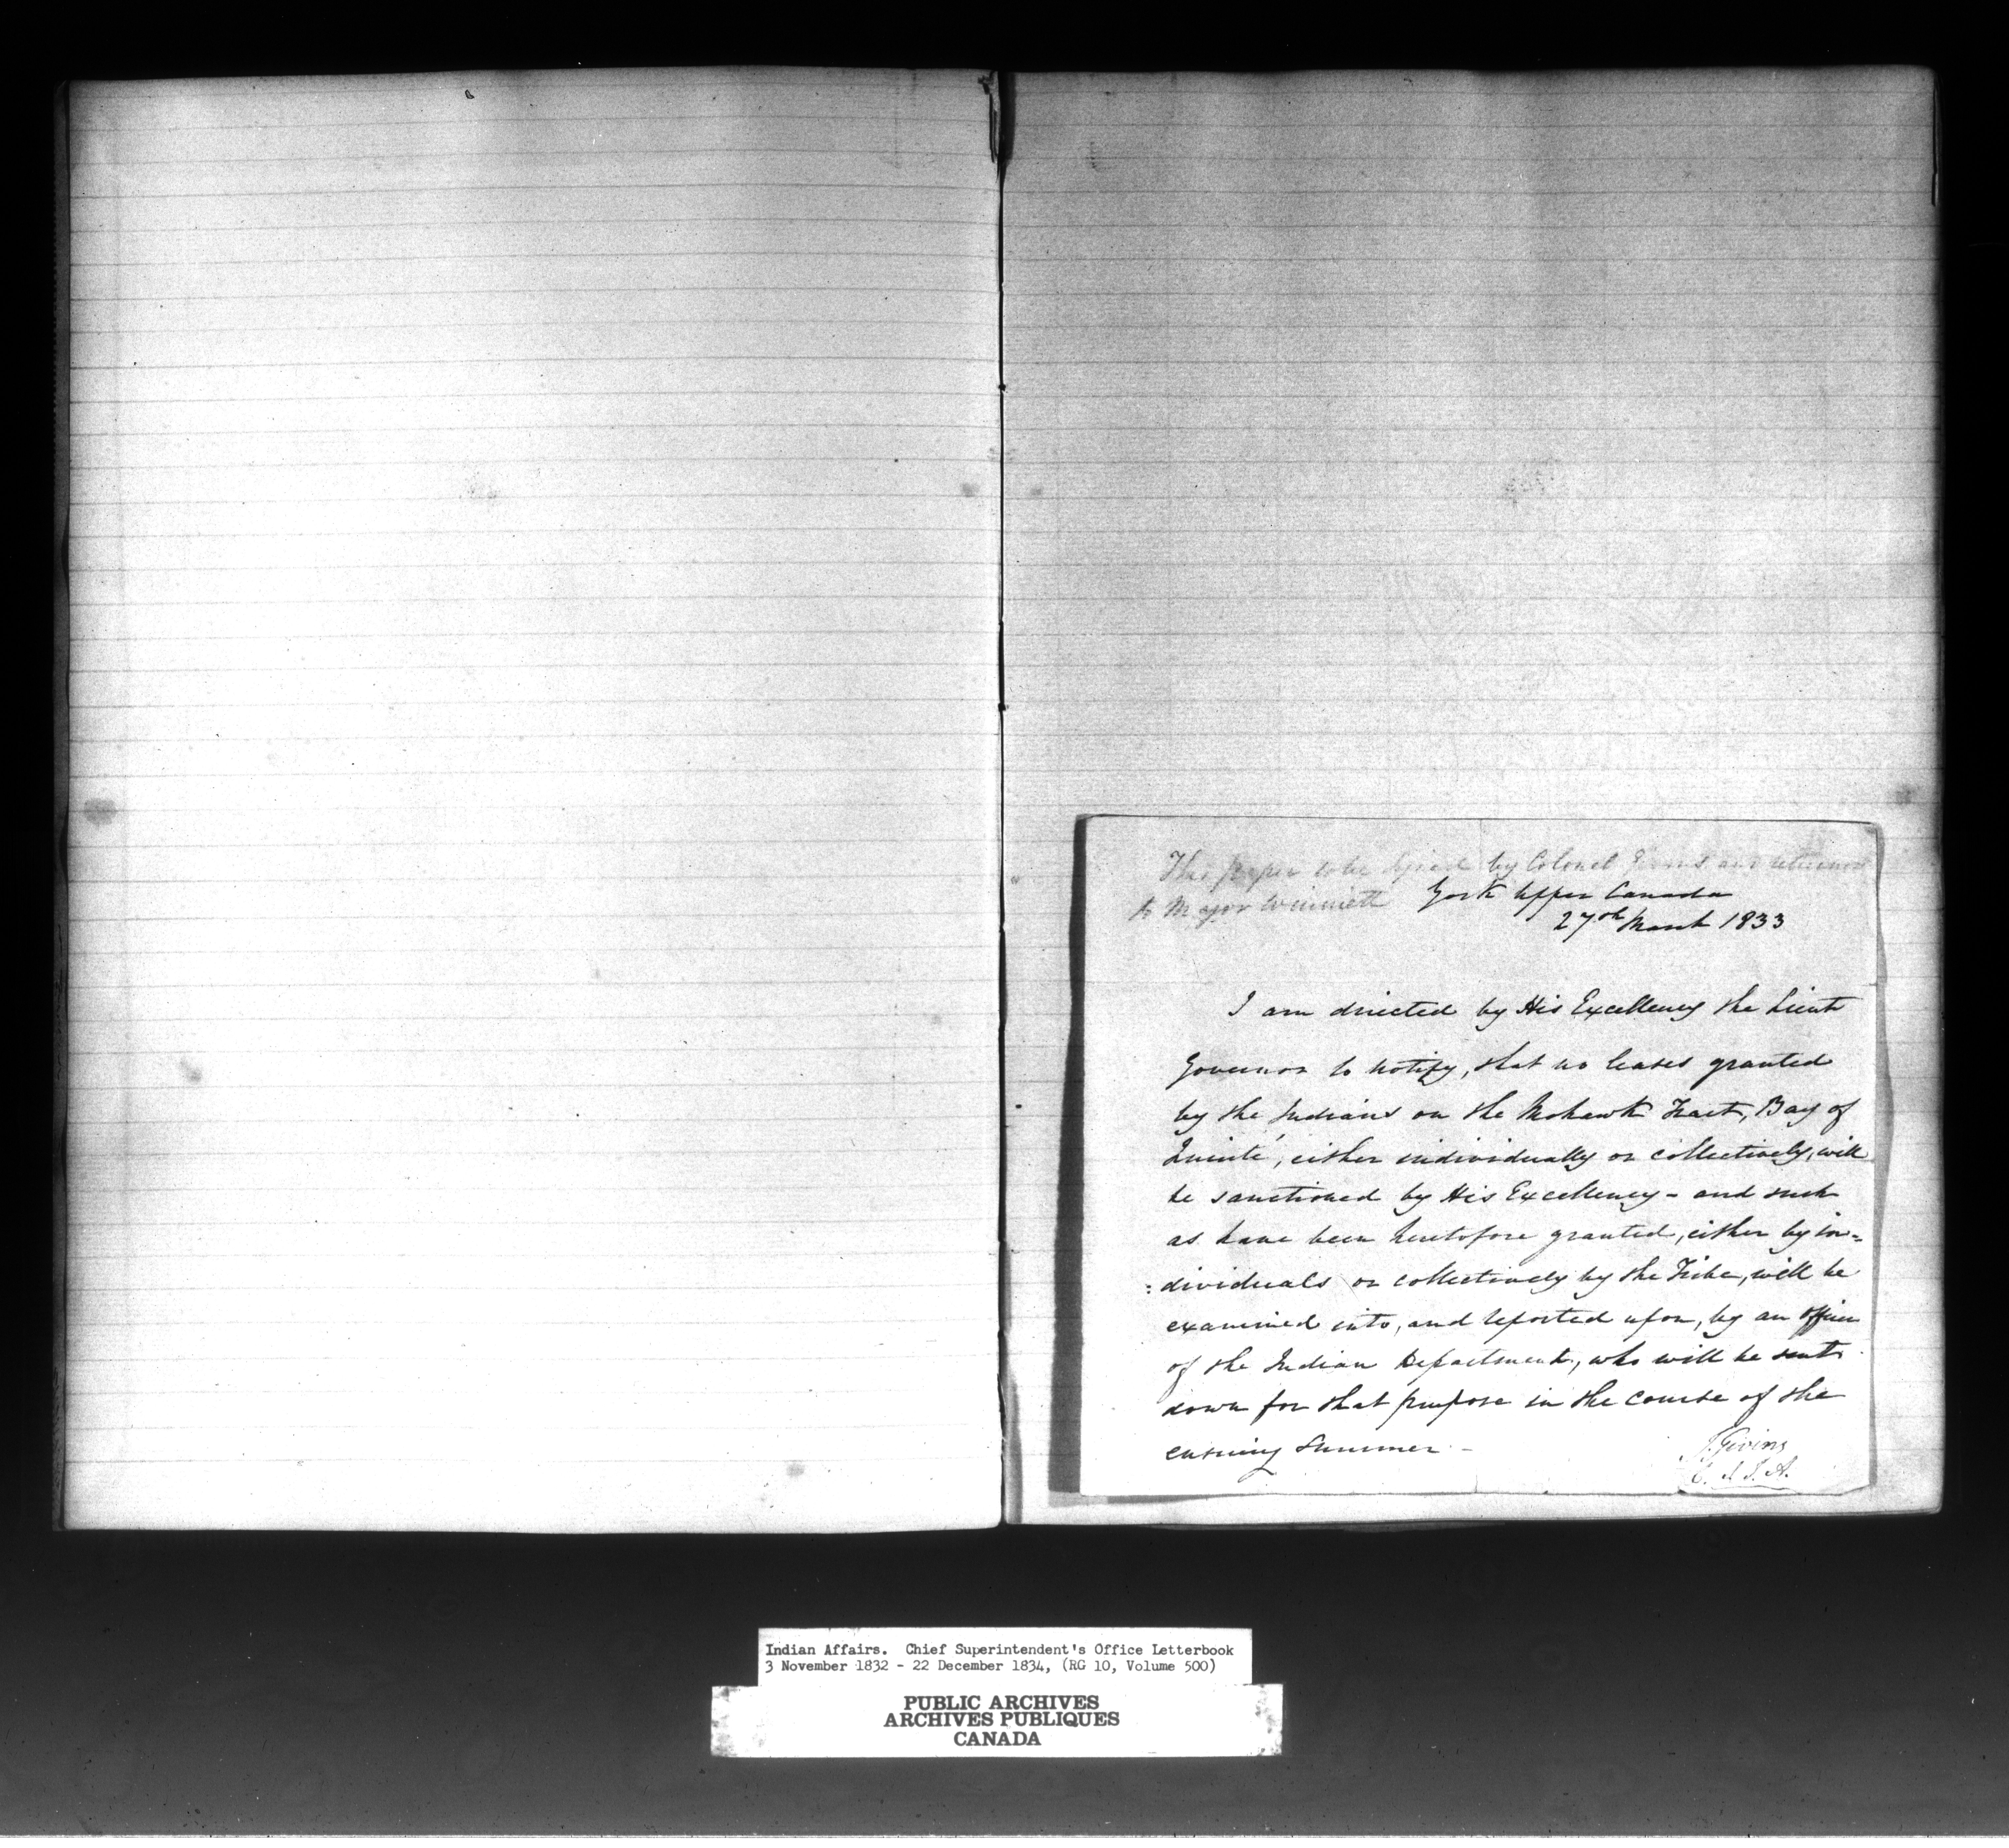 This paper to be signed by Colonel Givins and returned
to Major Winniett
York Upper Canada
27th March 1833
I am directed by His Excellency the Lieut
Governor to notify, that no leases granted
by the Indians on the Mohawk Tract, Bay of
Quinté, either individually or collectively, will
be sanctioned by His Excellency - and such
as have been heretofore granted, either by in=
=dividuals or collectively by the Tribe, will be
examined into, and reported upon, by an Officer
of the Indian Department, who will be sent
down for that purpose in the course of the
ensuing Summer. -
J. Givins
C. S. I. A.
Indian Affairs. Chief Superintendent's Office Letterbook
3 November 1832 - 22 December 1834, (RG 10, Volume 500)
PUBLIC ARCHIVES
ARCHIVES PUBLIQUES
CANADA